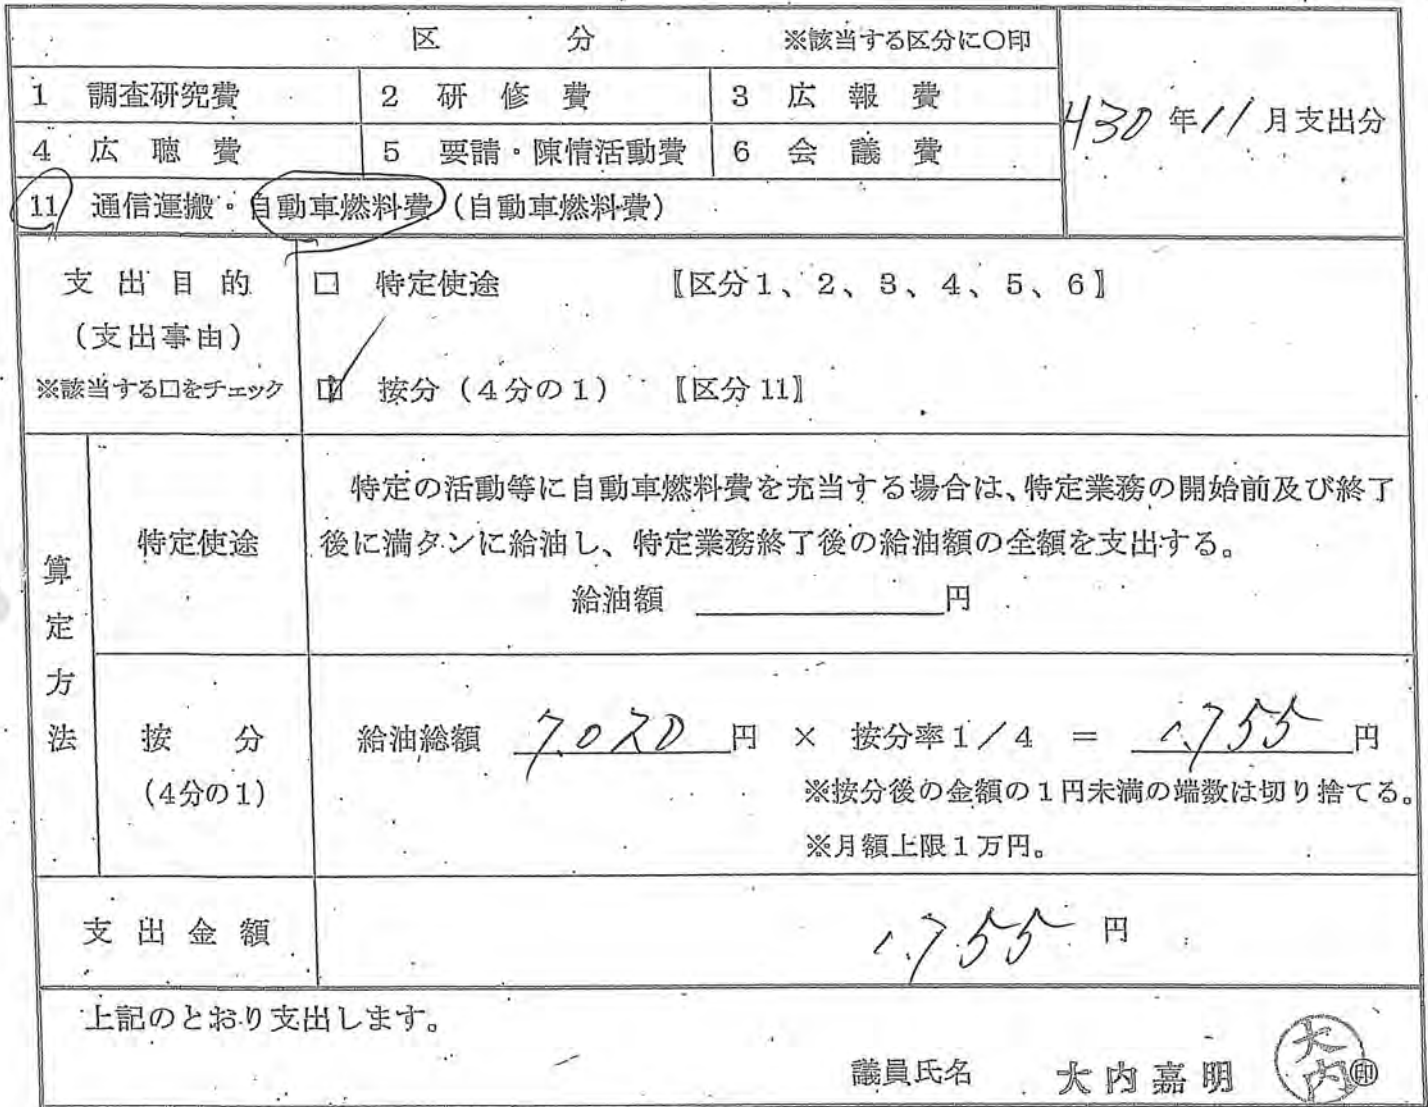 区　分　※該当する区分に〇印
1 調査研究費　2 研修費　3 広報費
H30年11月支出分
4 広聴費　5 要請・陳情活動費　6 会議費
11 通信運搬・自動車燃料費（自動車燃料費）
支出目的　□ 特定使途　〖区分1、2、3、4、5、6〗
（支出事由）
※該当する口をチェック　☑ 按分（4分の1）　〖区分11〗
算定方法
特定使途
特定の活動等に自動車燃料費を充当する場合は、特定業務の開始前及び終了
後に満タンに給油し、特定業務終了後の給油額の全額を支出する。
給油額　＿＿＿＿円
按分
（4分の1）
給油総額　7.020円 × 按分率1／4 ＝ 1.755円
※按分後の金額の1円未満の端数は切り捨てる。
※月額上限1万円。
支出金額　1.755円
上記のとおり支出します。
議員氏名　大内嘉明　㊞
大内